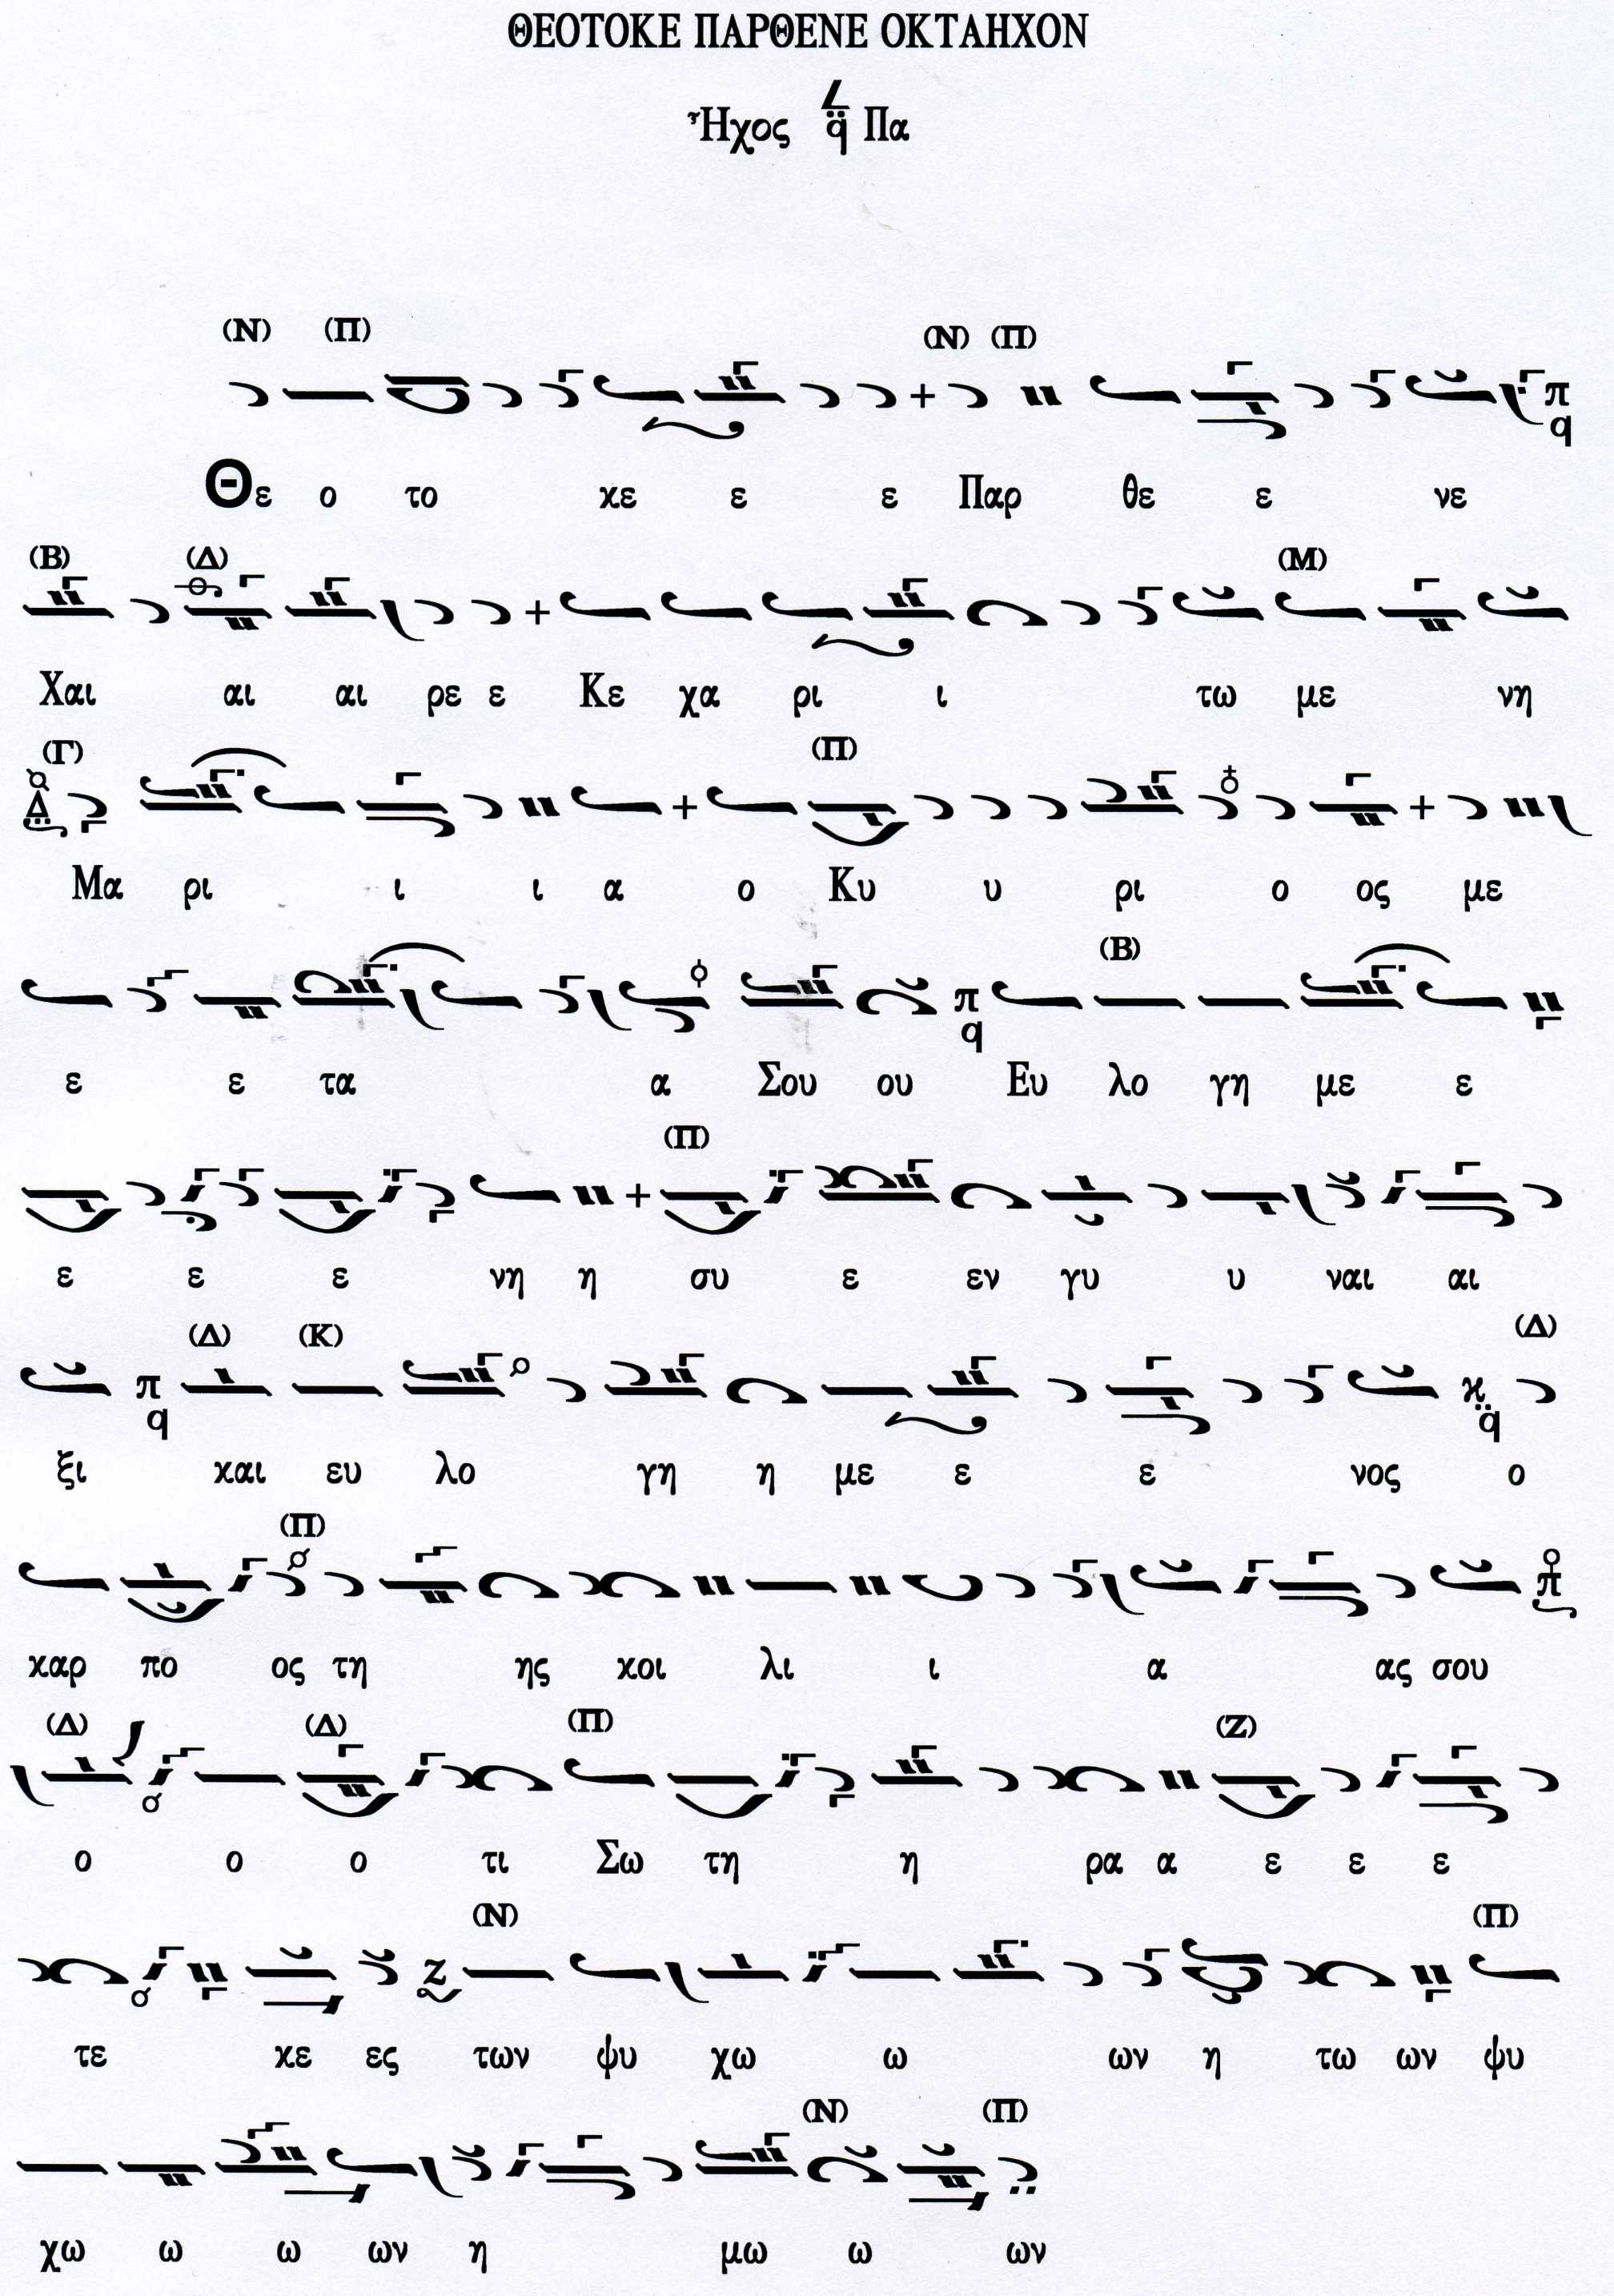 ΘΕΟΤΟΚΕ ΠΑΡΘΕΝΕ ΟΚΤΑΗΧΟΝ
Ἦχος q̈ Πα
(Ν) (Π) (Ν) (Π)
π q
Θε ο το κε ε ε Παρ θε ε νε
(Β) (Δ) (Μ)
Χαι αι αι ρε ε Κε χα ρι ι τω με νη
(Γ) (Π)
Δ
Μα ρι ι ι α ο Κυ υ ρι ο ος με
(Β)
π q
ε ε τα α Σου ου Ευ λο γη με ε
(Π)
ε ε ε νη η συ ε εν γυ υ ναι αι
(Δ) (Κ) (Δ)
π q κ q̈
ξι και ευ λο γη η με ε ε νος ο
(Π)
π
καρ πο ος τη ης κοι λι ι α ας σου
(Δ) (Δ) (Π) (Ζ)
ο ο ο τι Σω τη η ρα α ε ε ε
(Ν) (Π)
Ζ
τε κε ες των ψυ χω ω ων η τω ων ψυ
(Ν) (Π)
χω ω ω ων η μω ω ων